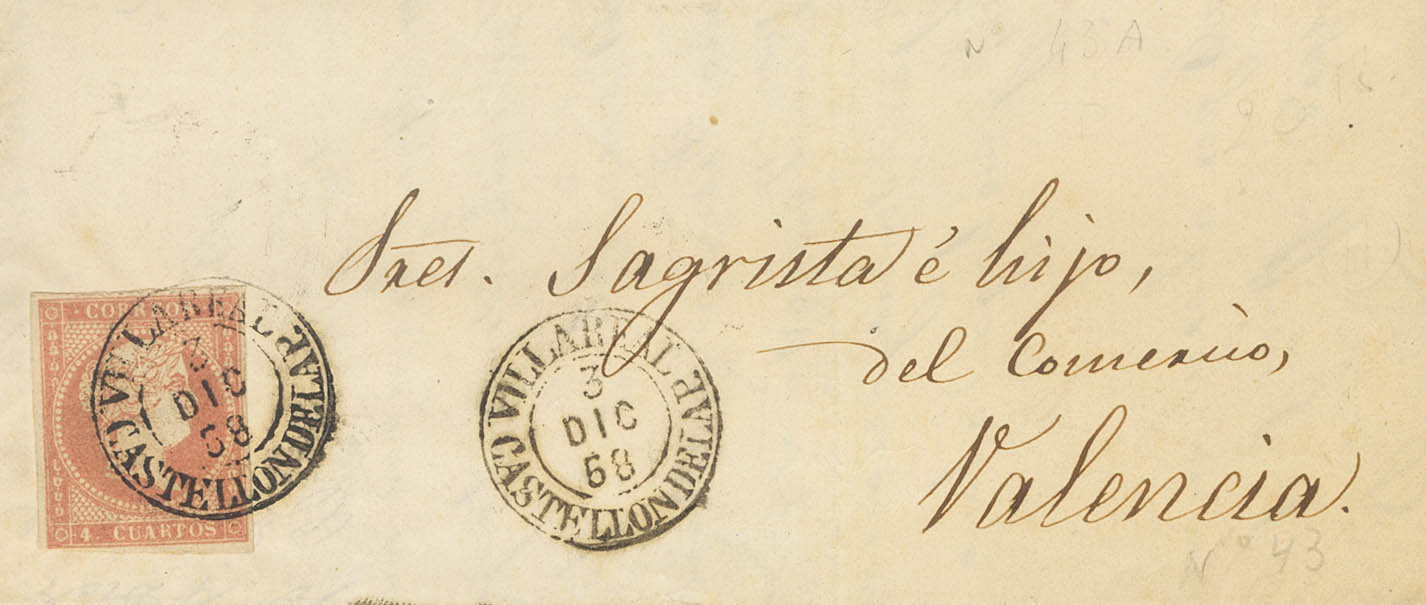 Nº 43 A
90
Sres. Sagrista é hijo,
del Comercio,
Valencia.
Nº 43
CORREOS
4. CUARTOS
VILLAREAL
3
DIC
58
CASTELLON DE LA P.
VILLAREAL
3
DIC
58
CASTELLON DE LA P.